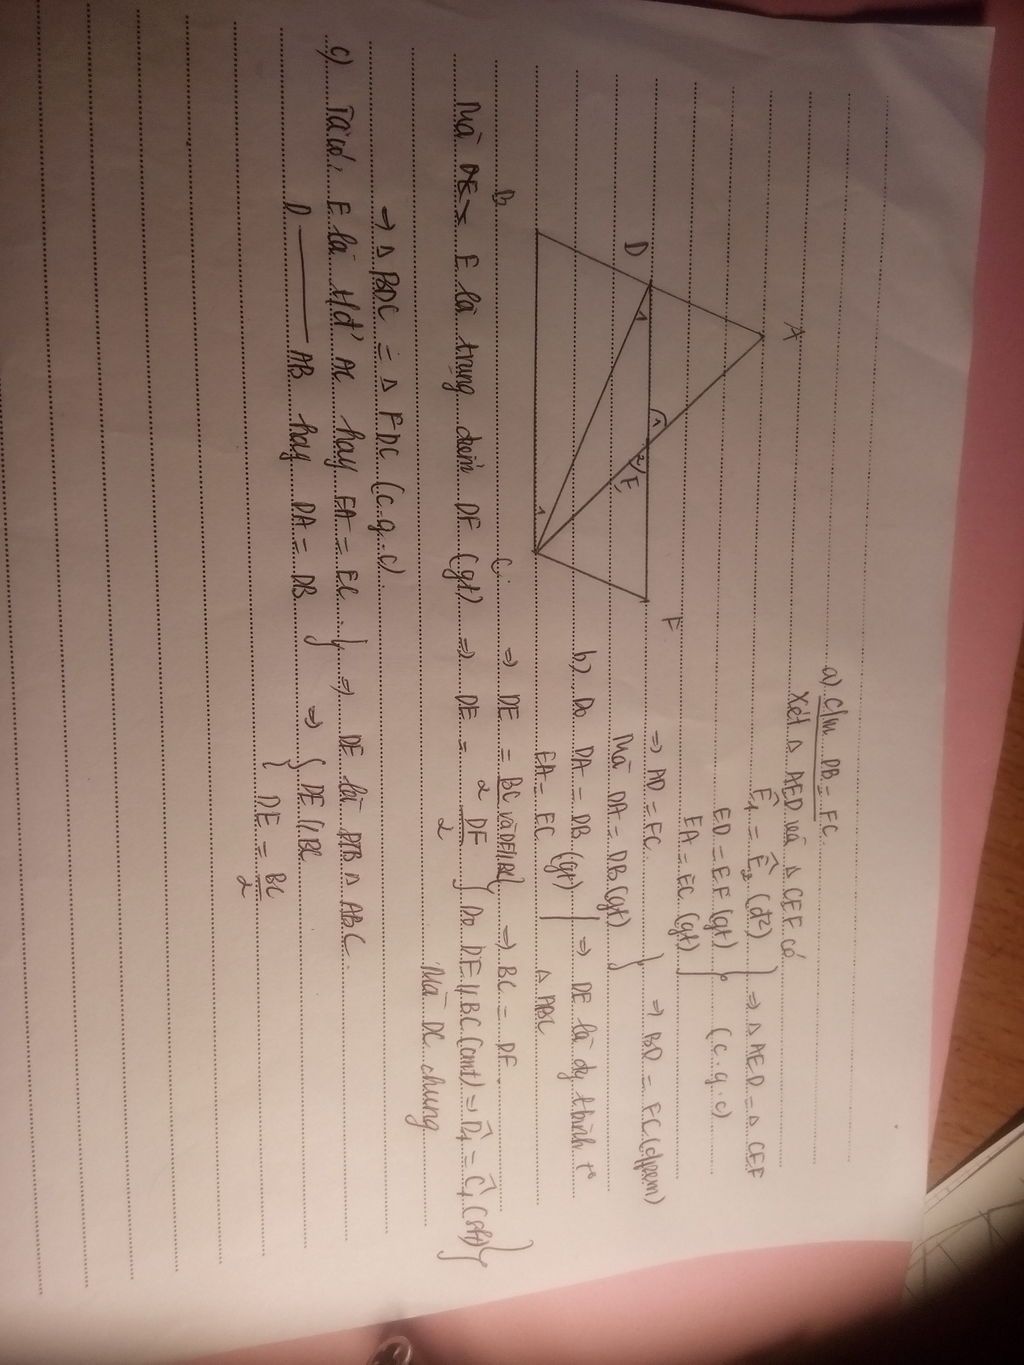 a) C/m DB = FC
Xét Δ AED và Δ CEF có
Ê1 = Ê2 (đ²)
ED = EF (gt)
EA = EC (gt)
} => Δ AED = Δ CEF
(c.g.c)
=> AD = FC
Mà DA = DB (gt)
} => BD = FC (đpcm)
b) Do DA = DB (gt)
EA = EC (gt)
} => DE là đg
Δ ABC
A
D
1
1
2
E
F
B
C
1
=> DE = BC/2 và DE // BC } => BC = DF
Mà E là trung điểm DF (gt) => DE = DF/2 } Do DF // BC (cmt) => D̂1 = Ĉ1 (slt) }
Mà DC chung
=> Δ BDC = Δ FDC (c.g.c)
c) Ta có, E là t/đ' AC hay EA = EC
D ——— AB hay DA = DB
} => DE là ĐTB Δ ABC
=> { DE // BC
DE = BC/2